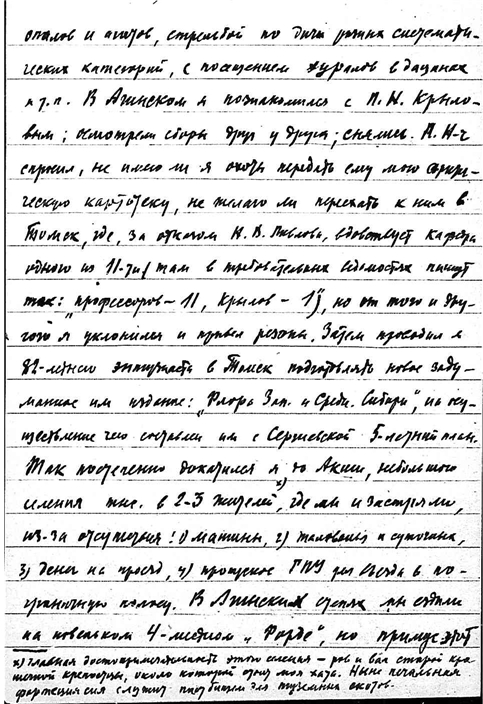 опалов и агатов, стрельбой по дичи разных системати-
ческих категорий, с посещением хуралов в дацанах
и т.п. В Агинском я познакомился с П. Н. Крыло-
вым; осмотрели сборы друг у друга; снялись. П. Н-ч
спросил, не имею ли я охоты передать ему мою
ческую картотеку, не желаю ли переехать к ним в
Томск, где, за отказом Н. В. Павлова, вдовствует кафедра
одного из 11-ти (там в требовательных ведомостях пишут
так: "профессоров – 11, Крылов – 1"), но от того и дру-
гого я уклонился и привел резоны. Затем проводил я
82-летнего энтузиаста в Томск подготовлять новое заду-
манное им издание: "Флора Зап. и Средн. Сибири", на осу-
ществление чего составлен им с Сергиевской 5-летний план.
Так постепенно докатился я до Акши, небольшого
селения тыс. в 2-3 жителей x), где мы и застряли,
из-за отсутствия: 1) машины, 2) жалованья и суточных,
3) денег на проезд, 4) пропусков ГПУ для въезда в по-
граничную полосу. В Агинских степях мы ездили
на новеньком 4-местном "Форде", но примус этот
x) Главная достопримечательность этого селения – ров и вал старой кре-
постной крепостцы, около которой стоит моя хата. Ныне печальная
фортеция сия служит пастбищем для туземных скотов.